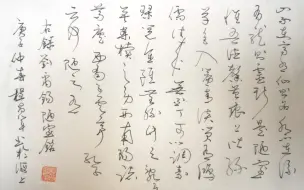 山不在高有仙则名水不在深
有龙则灵斯是陋室
惟吾德馨苔痕上阶绿
草色入帘青谈笑有鸿
儒往来无白丁可以调素
琴阅金经无丝竹之乱耳
无案牍之劳形南阳诸
葛庐西蜀子云亭孔子
云何陋之有
右录刘禹锡陋室铭
庚子仲春 书于海上